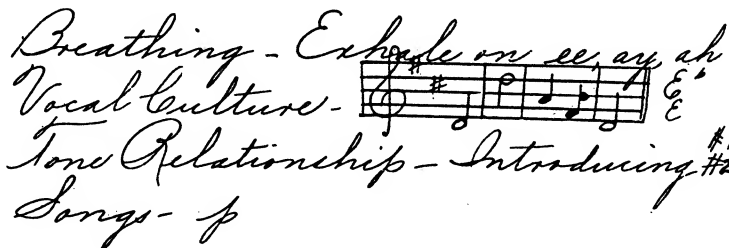 Breathing - Exhale on ee, ay, ah
Vocal Culture - E♭
E
Tone Relationship - Introducing
Songs - p